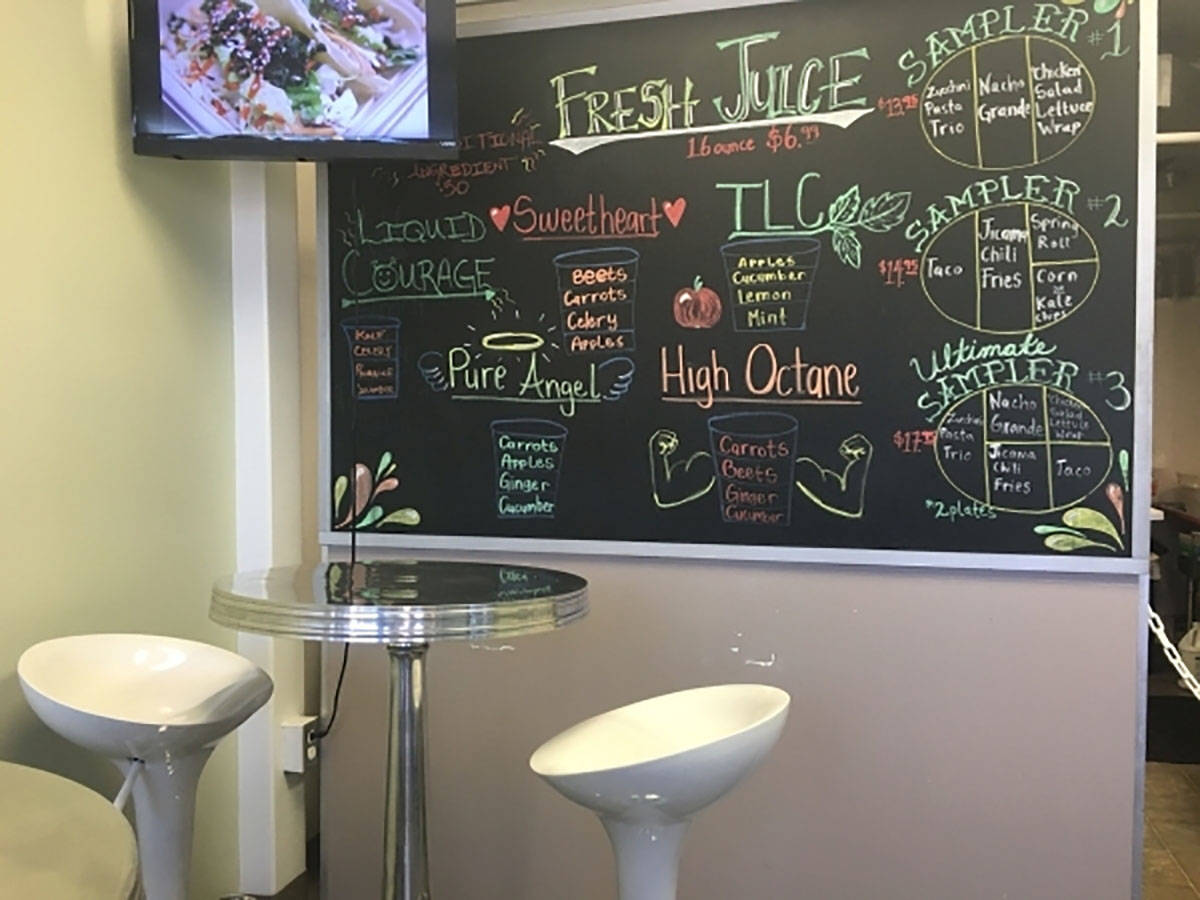 FRESH JUICE
16 ounce $6.99
INGREDIENT
.50
LIQUID
COURAGE
KALE
CELERY
Sweetheart
Beets
Carrots
Celery
Apples
TLC
Apples
Cucumber
Lemon
Mint
Pure Angel
Carrots
Apples
Ginger
Cucumber
High Octane
Carrots
Beets
Ginger
Cucumber
SAMPLER #1
$13.95
Zucchini
Pasta
Trio
Nacho
Grande
Chicken
Salad
Lettuce
Wrap
SAMPLER #2
$14.95
Taco
Jicama
Chili
Fries
Spring
Roll
Corn
Kale
Chips
Ultimate
SAMPLER #3
$17.95
Zucchini
Pasta
Trio
Nacho
Grande
Chicken
Salad
Lettuce
Wrap
Jicama
Chili
Fries
Taco
*2 plates